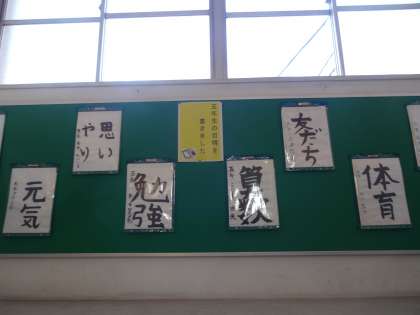 五年生の目標を
書きました
元気
思い
やり
勉強
算数
友だち
体育